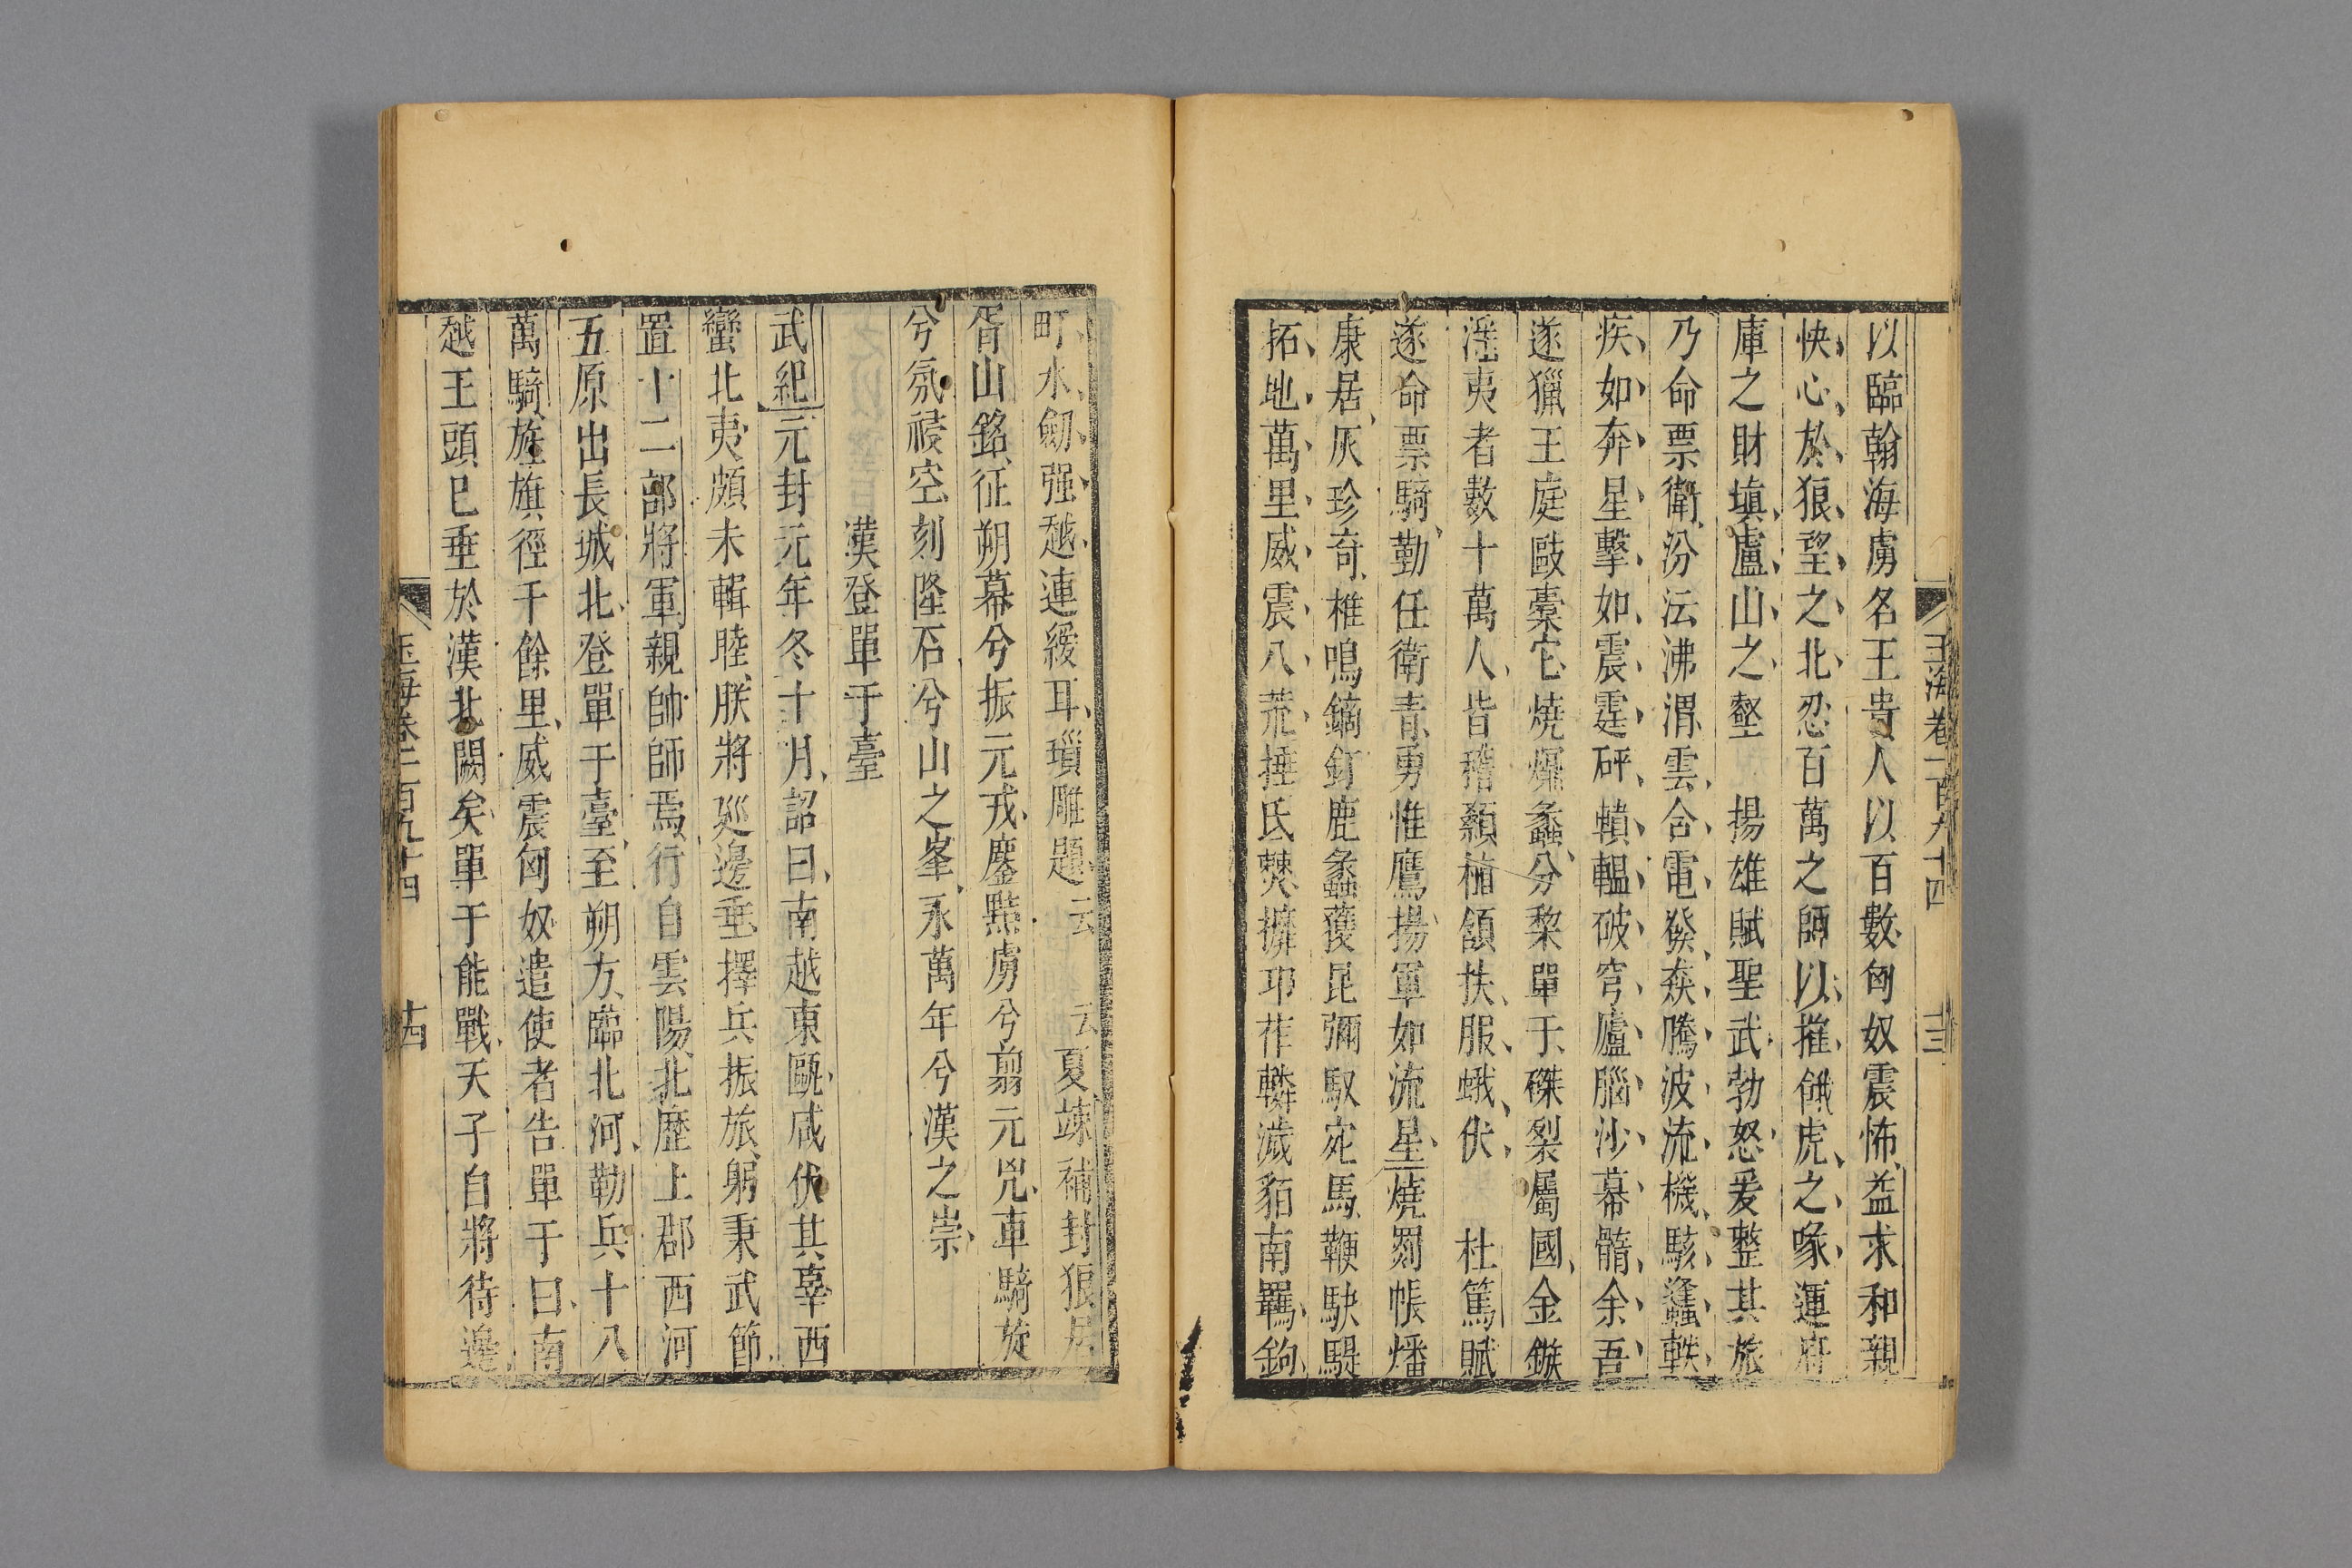 玉海卷一百九十四 十三
以臨翰海虜名王貴人以百數匈奴震怖益求和親
快心於狼望之北忍百萬之師以摧餓虎之喙運府
庫之財填盧山之壑 揚雄賦聖武勃怒爰整其旅
乃命票衛汾沄沸渭雲合電發猋騰波流機駭蠭軼
疾如奔星擊如震霆砰轒轀破穹廬腦沙幕髓余吾
遂獵王庭敺橐它燒爥蠡分棃單于磔裂屬國金鏃
淫夷者數十萬人皆稽顙樹頷扶服蛾伏 杜篤賦
遂命票騎勤任衛青勇惟鷹揚軍如流星燒罽帳燔
康居灰珍奇椎鳴鏑釘鹿蠡獲昆彌馭宛馬鞭駃騠
拓地萬里威震八荒捶氐僰擯邛莋轔濊貊南羈鉤
町水劒强越連緩耳瑣雕題云 云夏竦補封狼居
胥山銘征朔幕兮振元戎鏖黠虜兮翦元兇車騎旋
兮氛祲空刻隆石兮山之峯永萬年兮漢之崇
漢登單于臺
武紀元封元年冬十月詔曰南越東甌咸伏其辜西
蠻北夷頗未輯睦朕將巡邊垂擇兵振旅躬秉武節
置十二部將軍親帥師焉行自雲陽北歷上郡西河
五原出長城北登單于臺至朔方臨北河勒兵十八
萬騎旌旗徑千餘里威震匈奴遣使者告單于曰南
越王頭已垂於漢北闕矣單于能戰天子自將待邊
玉海卷一百九十四 十四